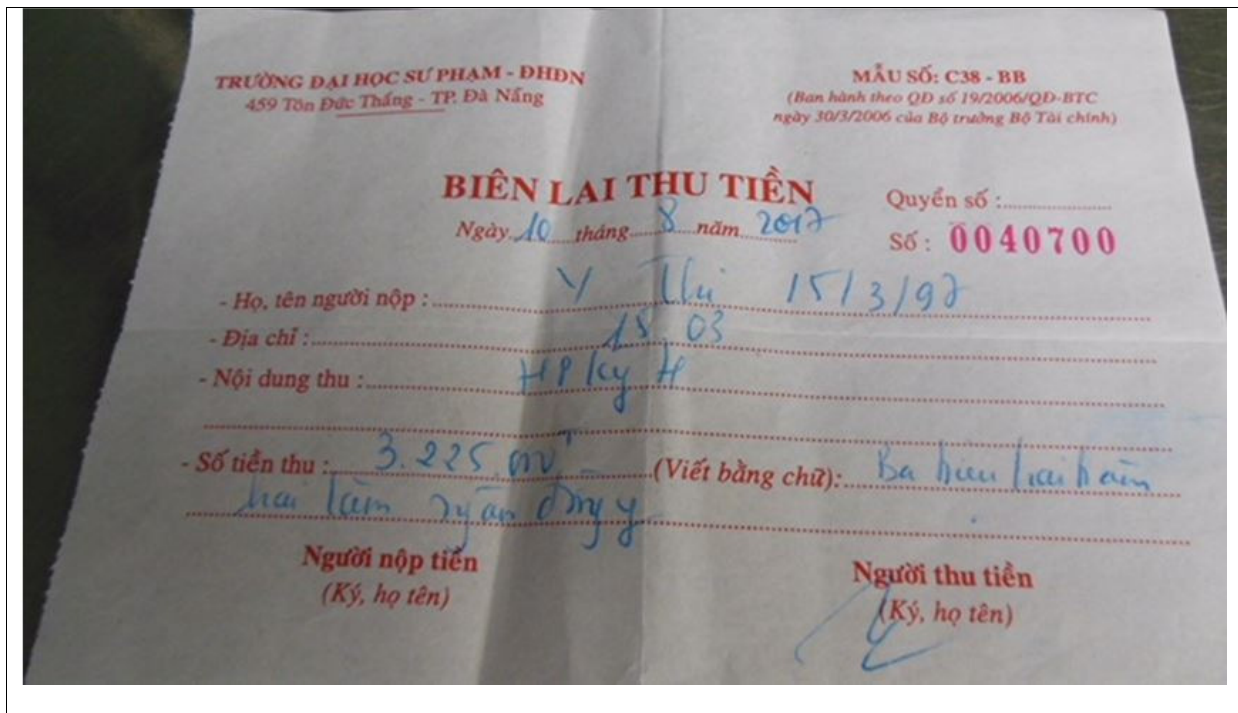 TRƯỜNG ĐẠI HỌC SƯ PHẠM - ĐHĐN
459 Tôn Đức Thắng - TP. Đà Nẵng
MẪU SỐ: C38 - BB
(Ban hành theo QĐ số 19/2006/QĐ-BTC
ngày 30/3/2006 của Bộ trưởng Bộ Tài chính)
BIÊN LAI THU TIỀN
Quyển số :
Ngày 10 tháng 8 năm 2017
Số : 0040700
- Họ, tên người nộp : Y Thi 15/3/97
- Địa chỉ : 15 03
- Nội dung thu : HP kỳ
- Số tiền thu : 3.225. (Viết bằng chữ): Ba hai trăm
hai lăm ngàn đồng y
Người nộp tiền
(Ký, họ tên)
Người thu tiền
(Ký, họ tên)